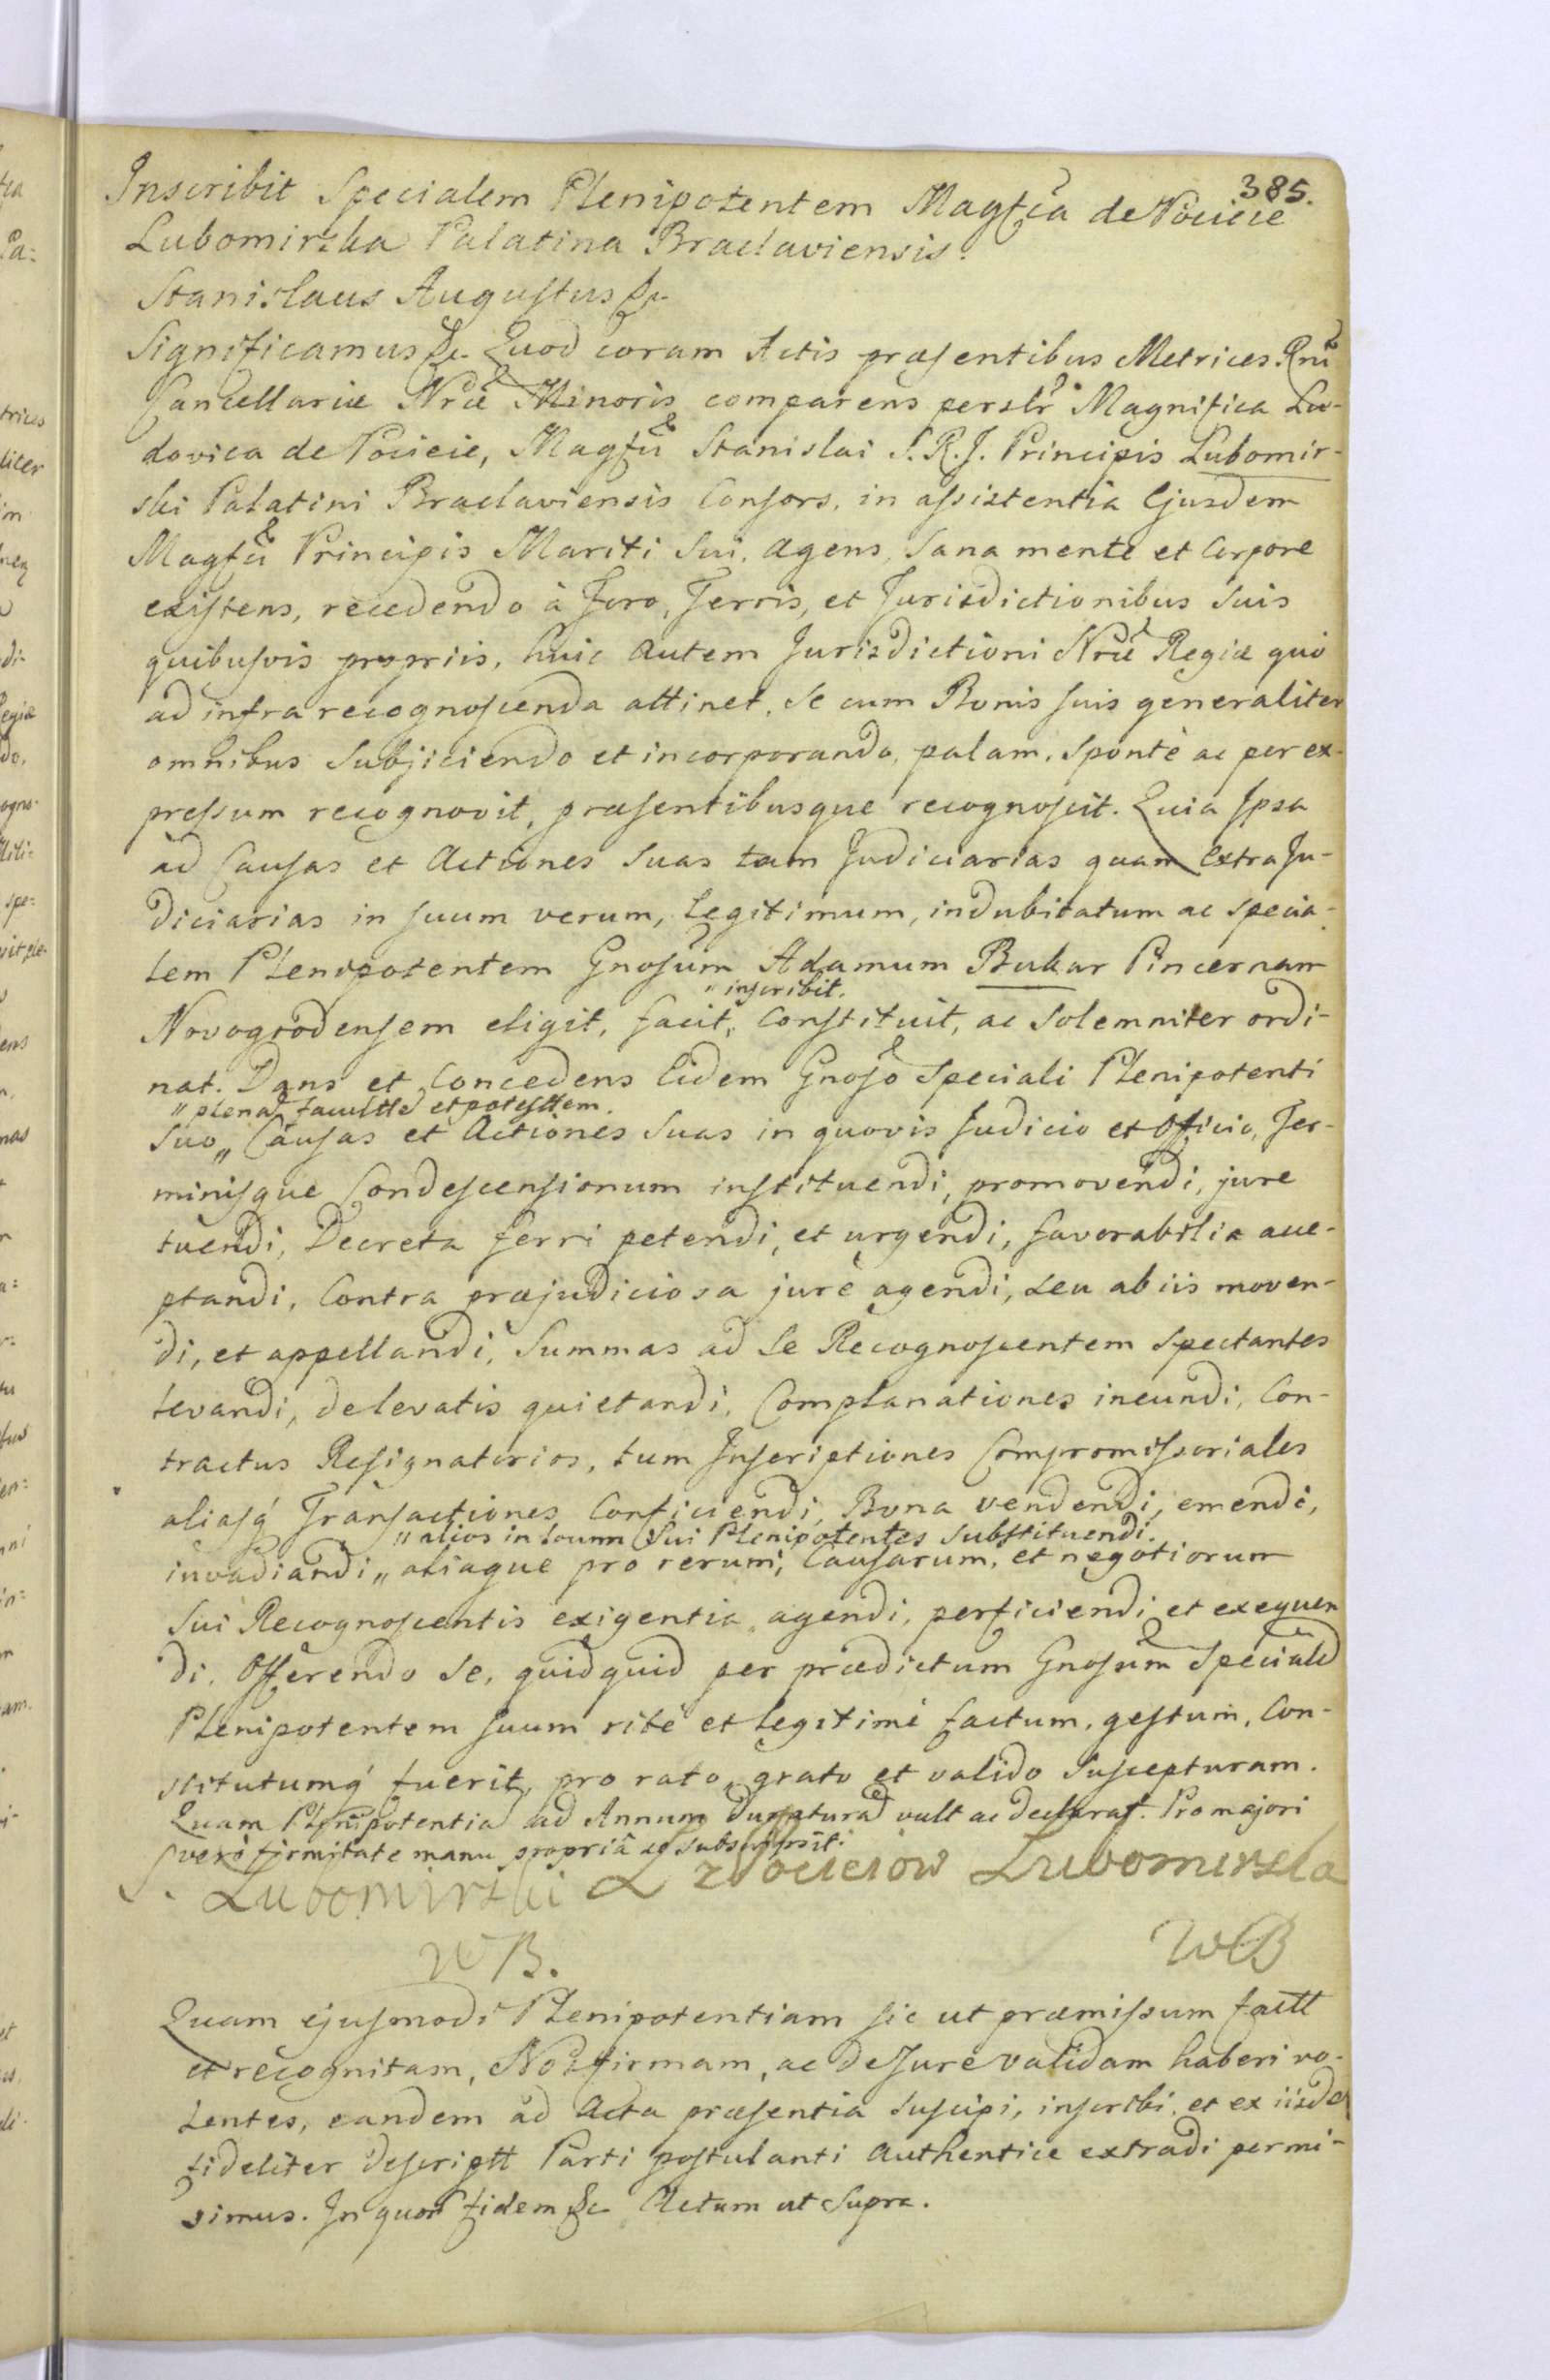 385.
Inscribit Specialem Plenipotentem Magfca de Pocieie
Lubomirska Palatina Braclaviensis.
Stanislaus Augustus &c
Significamus &c. Quod coram Actis præsentibus Metrices Rni
Cancellariæ Nræ Minoris comparens persلr Magnifica Lu-
dovica de Pocieie, Magfci Stanislai S.R.J. Principis Lubomir-
ski Palatini Braclaviensis Consors, in assistentia Ejusdem
Magfci Principis Mariti Sui, agens, Sana mente et Corpore
existens, recedendo à Foro, Terris, et Jurisdictionibus Suis
quibusvis propriis, huic autem Jurisdictioni Nræ Regiæ quò
ad infra recognoscenda attinet, Se cum Bonis suis generaliter
omnibus Subjiciendo et incorporando, palam, Spontè ac per ex-
pressum recognovit, præsentibusque recognoscit. Quia Ipsa
ad Causas et Actiones Suas tam Judiciarias quam extraJu-
diciarias in suum verum, Legitimum, indubitatum ac specia-
lem Plenipotentem Gnosum Adamum Bukar Pincernam
„ inscribit.
Novogrodensem eligit, facit, „ Constituit, ac Solemniter ordi-
nat. Dans et Concedens Eidem Gnoso Speciali Plenipotenti
„ plena facultte et potesttem.
Suo „ Causas et Actiones Suas in quovis Judicio et Officio, Ter-
minisque Condescensionum instituendi, promovendi, jure
tuendi, Decreta ferri petendi, et urgendi, favorabilia acce-
ptandi, Contra præjudiciosa jurè agendi, seu ab iis moven-
di, et appellandi, Summas ad Se Recognoscentem Spectantes
levandi, de levatis quietandi, Complanationes ineundi, Con-
tractus Resignatorios, tum Inscriptiones Compromissoriales
aliasq́ Transactiones Conficiendi, Bona vendendi, emendi,
„ alios in Locum Sui Plenipotentes Substituendi.
invadiandi „ aliaque pro rerum, Causarum, et negotiorum
Sui Recognoscentis exigentia agendi, perficiendi et exequen
di. Offerendo Se, quidquid per prædictum Gnosum Speciale
Plenipotentem suum ritè et Legitimè factum, gestum, Con-
stitutumq́ fuerit, pro rato, grato et valido Suscepturam.
Quam Plenipotentia ad Annum duratura vult ac declarat. Pro majori
verò firmitate manu propriâ se Subscripsit.
S. Lubomirski L z Pocieiow Lubomirska
WB. WB
Quam ejusmodi Plenipotentiam sic ut præmissum factt
et recognitam, Nos firmam, ac de Jure validam haberi vo-
lentes, eandem ad Acta præsentia Suscipi, inscribi, et ex iisde
fideliter descriptt Parti postulanti Authentice extradi permi-
simus. In quor fidem &c Actum ut Supra.